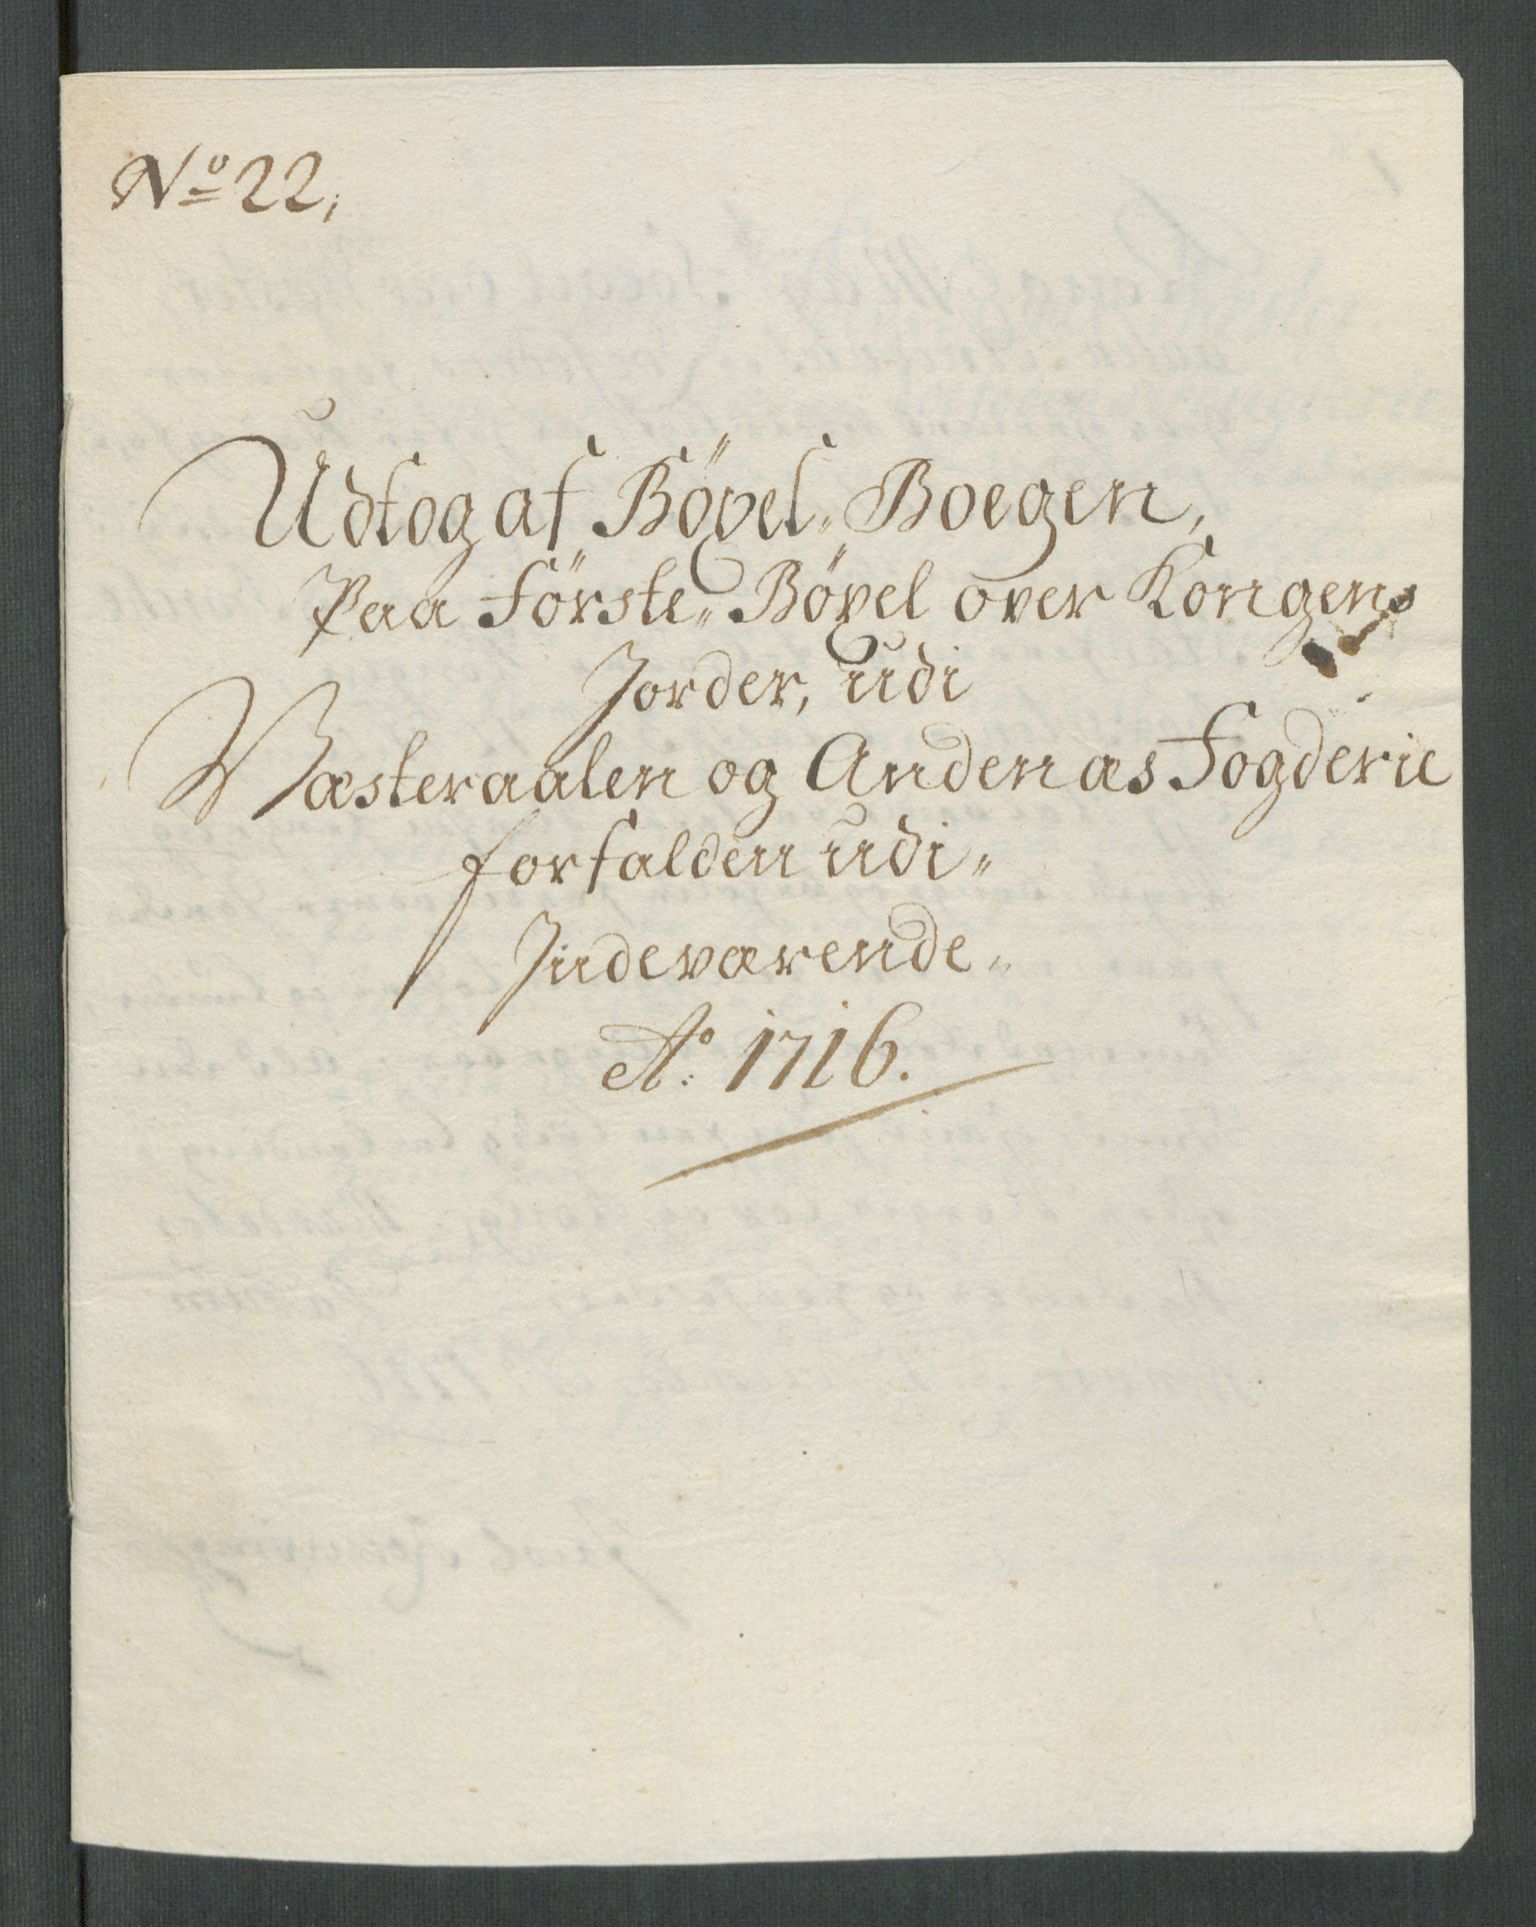 No 22,
Udtog af Böxel-Boegen,
Paa Förste-Böxel over Kongens
Jorder, udi
Wæsteraalen og Andenæs Fogderie
forfalden udi-
Indeværende-
Ao: 1716.